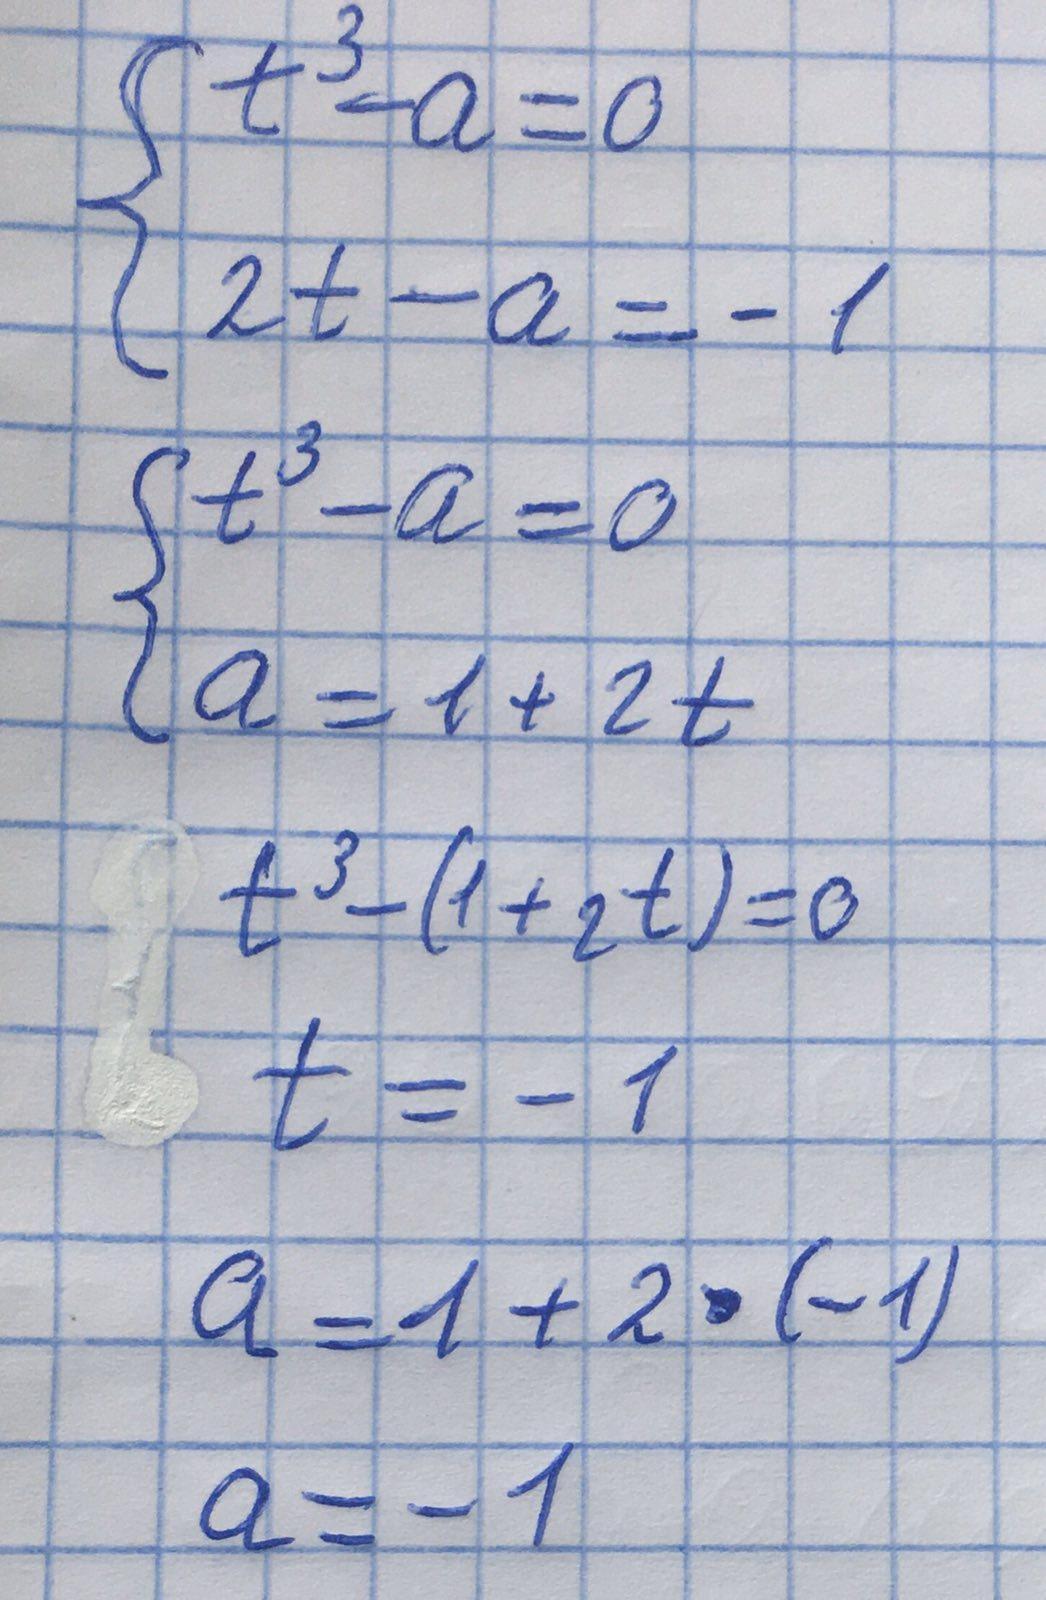 t³-a=0
2t-a=-1
t³-a=0
a=1+2t
t³-(1+2t)=0
t=-1
a=1+2•(-1)
a=-1